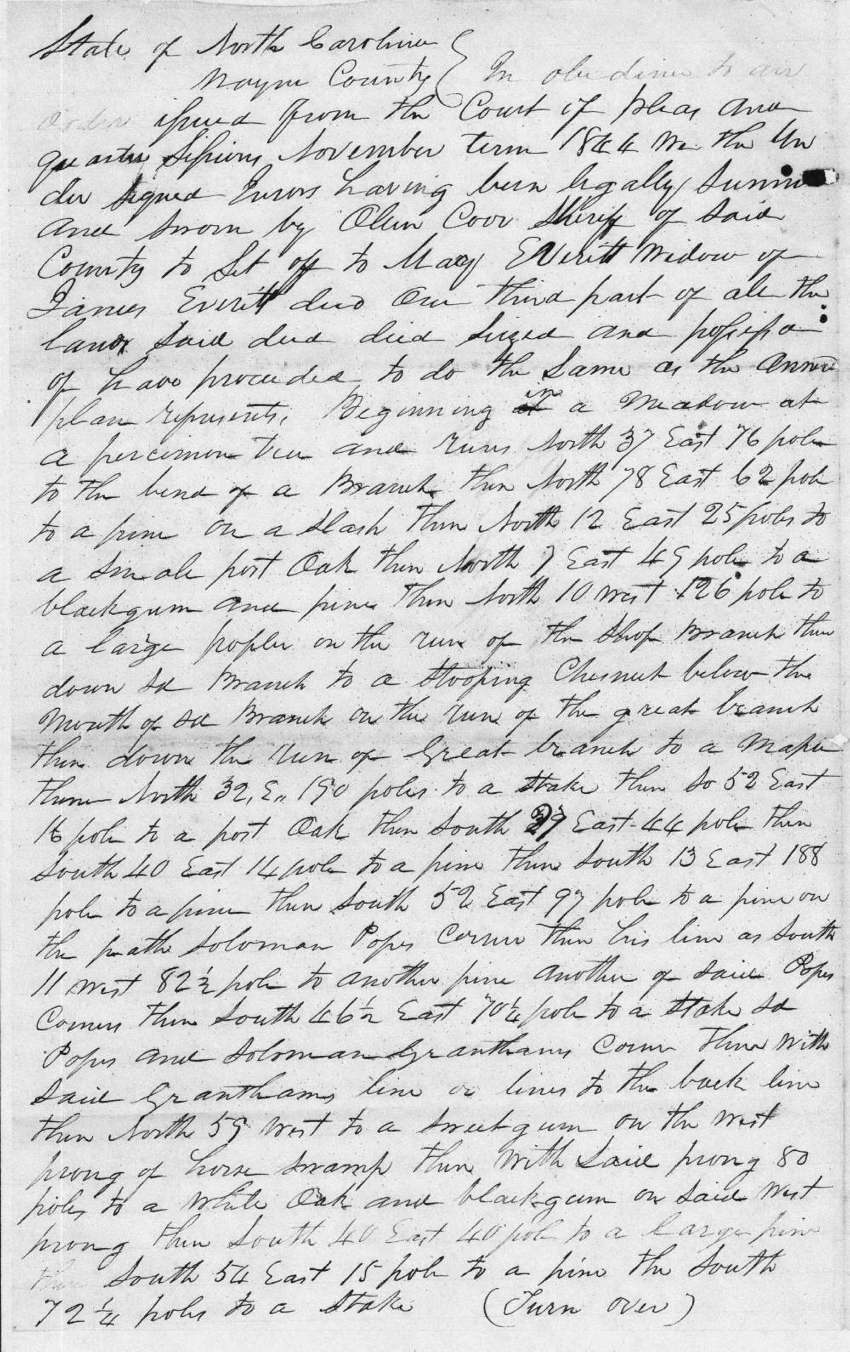 State of North Carolina
Wayne County In obedience to an
Order issued from the Court of pleas and
quarter Sessions November term 1844 We the Un
der signed Jurors having been legally Summ
and sworn by Olen Coor Sheriff of said
County to Set off to May Everitt Widow of
James Everitt decd One third part of all the
lands said decd died seized and possessd
of have proceeded to do the Same as the Annexd
plan represents, Beginning in a Meadow at
a percimon tree and runs North 37 East 76 pole
to the bend of a Branch then North 78 East 62 pole
to a pine on a slash then North 12 East 25 poles to
a Smale post Oak then North 7 East 49 pole to a
blackgum and pine then North 10 West 126 pole to
a large popler on the run of the Shop Branch then
down sd Branch to a stooping Chesnut below the
Mouth of sd Branch on the run of the great branch
then down the run of Great branch to a Maple
thence North 32, E,, 190 poles to a stake then So 52 East
16 pole to a post Oak then South 39 East 44 pole then
South 40 East 14 pole to a pine then South 13 East 188
pole to a pine then South 52 East 97 pole to a pine on
the path Soloman Popes Corner then his line as South
11 West 82½ pole to another pine another of said Popes
Corners then South 46½ East 70¼ pole to a stake sd
Popes and Soloman Granthams Corner then With
Said Granthams line or lines to the back line
then North 59 West to a sweetgum on the West
prong of horse swamp then With said prong 80
poles to a White Oak and blackgum on said West
prong then South 40 East 40 pole to a large pine
then South 54 East 15 pole to a pine the South
72¼ poles to a stake (Turn over)